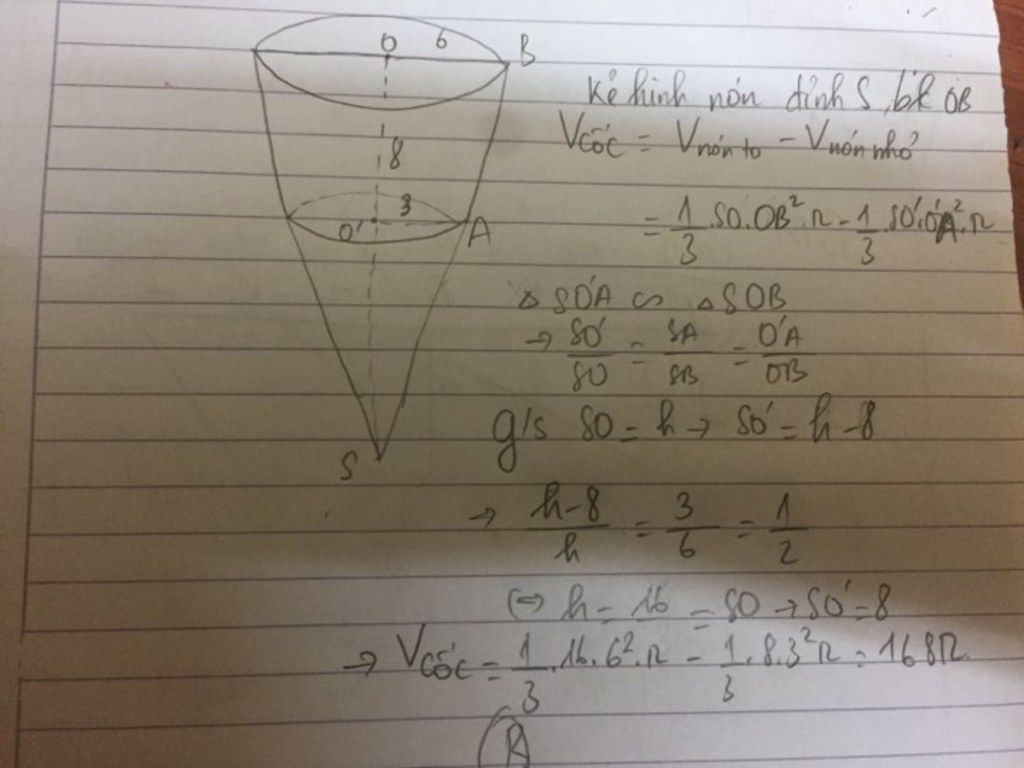 O 6 B
8
3
O' A
S
Kẻ hình nón đỉnh S, bk OB
Vcốc = Vnón to - Vnón nhỏ
= 1/3 . SO . OB² . π - 1/3 . SO' . O'A² . π
△ SO'A ∽ △ SOB
→ SO'/SO = SA/SB = O'A/OB
g/s SO = h → SO' = h - 8
→ h-8/h = 3/6 = 1/2
(⇔ h = 16 = SO → SO' = 8
→ Vcốc = 1/3 . 16 . 6² . π - 1/3 . 8 . 3² π = 168π
A